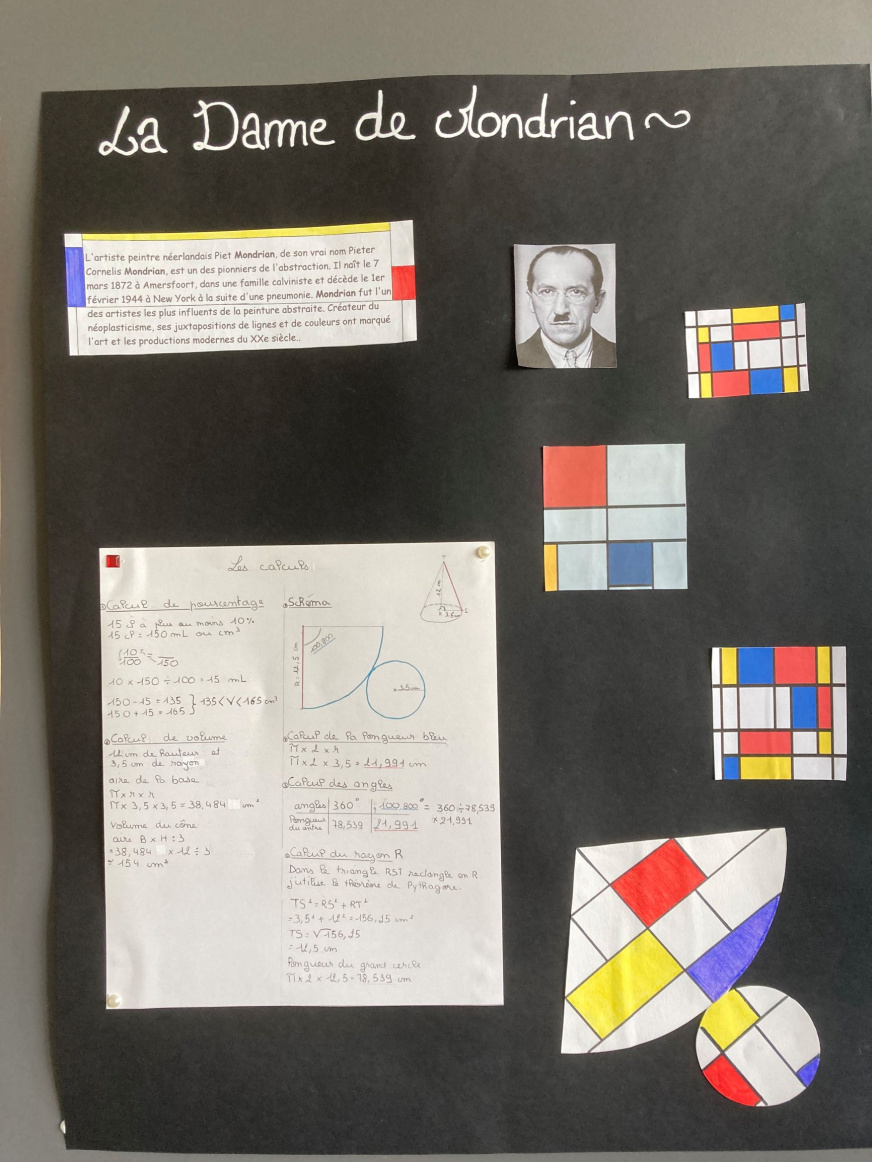 La Dame de Mondrian ~
L'artiste peintre néerlandais Piet Mondrian, de son vrai nom Pieter
Cornelis Mondrian, est un des pionniers de l'abstraction. Il naît le 7
mars 1872 à Amersfoort, dans une famille calviniste et décède le 1er
février 1944 à New York à la suite d'une pneumonie. Mondrian fut l'un
des artistes les plus influents de la peinture abstraite. Créateur du
néoplasticisme, ses juxtapositions de lignes et de couleurs ont marqué
l'art et les productions modernes du XXe siècle..
Les calculs
Calcul de pourcentage
15 cl à plus ou moins 10%
15 cl = 150 mL ou cm³
10/100 = /150
10 x 150 ÷ 100 = 15 mL
150 - 15 = 135 } 135 < V < 165 cm³
150 + 15 = 165
Calcul de volume
12 cm de hauteur et
3,5 cm de rayon
aire de la base
π x r x r
π x 3,5 x 3,5 = 38,484 cm²
volume du cône
aire B x H ÷ 3
= 38,484 x 12 ÷ 3
≈ 154 cm³
Schéma
12 cm
3,5 cm
R = 12,5 cm
100,800
3,5 cm
Calcul de la longueur bleu
π x 2 x r
π x 2 x 3,5 = 21,991 cm
Calcul des angles
angles 360° 100,800° = 360 ÷ 78,539
longueur 78,539 21,991 x 21,991
Calcul du rayon R
Dans le triangle RST rectangle en R
j'utilise le théorème de Pythagore.
TS² = RS² + RT²
= 3,5² + 12² = 156,25 cm²
TS = √156,25
= 12,5 cm
longueur du grand cercle
π x 2 x 12,5 = 78,539 cm